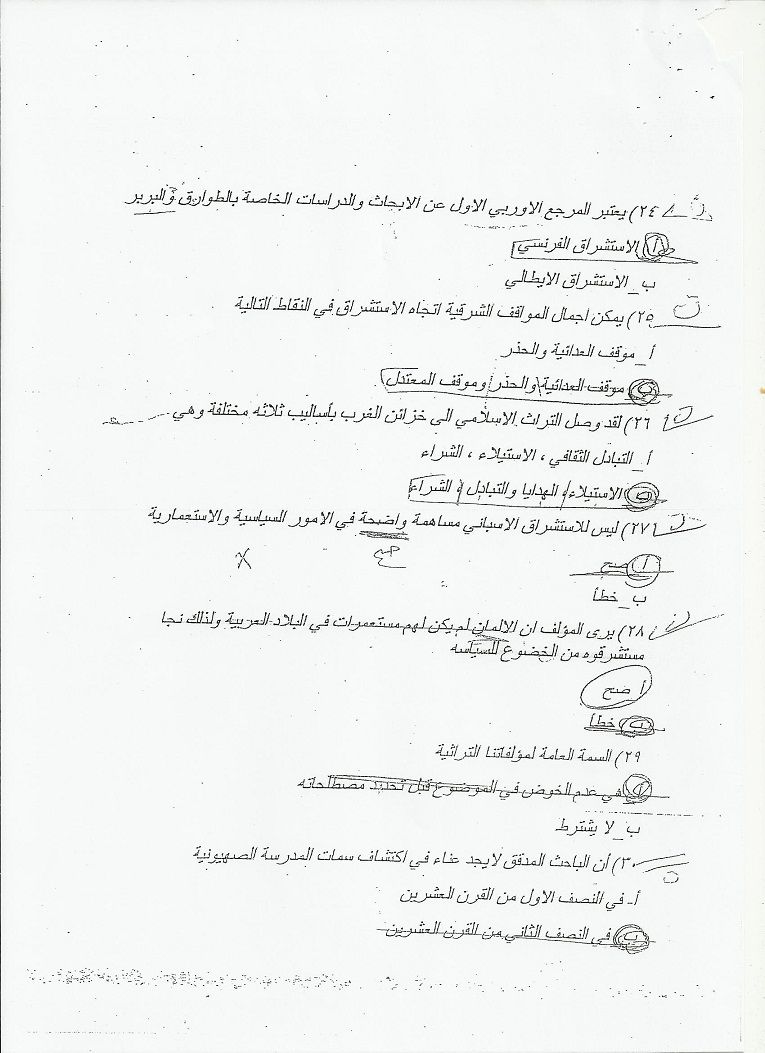 ٢٤) يعتبر المرجع الاوربي الاول عن الابحاث والدراسات الخاصة بالطوارق والبربر
أ_ الاستشراق الفرنسي
ب_ الاستشراق الايطالي
٢٥) يمكن اجمال المواقف الشرقية اتجاه الاستشراق في النقاط التالية
أ_ موقف العدائية والحذر
ب_ موقف العدائية والحذر وموقف المعتدل
٢٦) لقد وصل التراث الاسلامي الى خزائن الغرب بأساليب ثلاثه مختلفة وهي
أ_ التبادل الثقافي ، الاستيلاء ، الشراء
ب_ الاستيلاء الهدايا والتبادل الشراء
٢٧) ليس للاستشراق الاسباني مساهمة واضحة في الامور السياسية والاستعمارية
أ_ صح
صح X
ب_ خطأ
٢٨) يرى المؤلف ان الالمان لم يكن لهم مستعمرات في البلاد العربية ولذلك نجا
مستشرقوه من الخضوع للسياسه
أ_ صح
ب_ خطأ
٢٩) السمة العامة لمؤلفاتنا التراثية
أ_ هي عدم الخوض في الموضوع قبل تحديد مصطلحاته
ب_ لا يشترط
٣٠) أن الباحث المدقق لا يجد عناء في اكتشاف سمات المدرسة الصهيونية
أ- في النصف الاول من القرن العشرين
ب_ في النصف الثاني من القرن العشرين